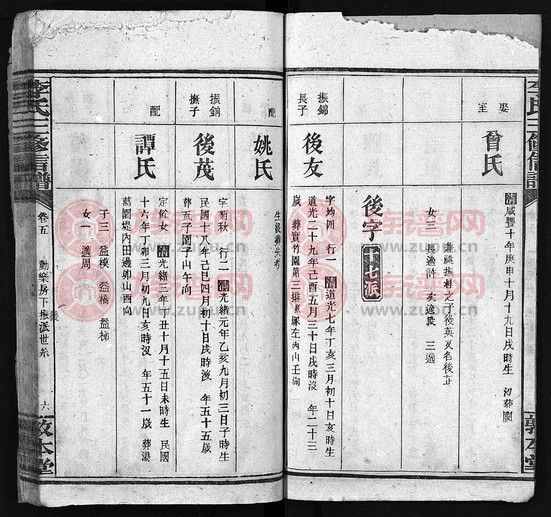 李氏三修信譜
娶 曾氏
室
清咸豐十年庚申十月十九日戌時生
兼祧撫相之子後英又名後正
女三 長適許 次適 三適
後字十七派
振錦 後友
長子
字均 行一 清道光七年丁亥三月初十日亥時生
道光二十九年己酉五月三十日戌時沒 年二十三
歲 葬寶竹園第三排 左內山壬向
配 姚氏
生沒葬失考
振錦 後茂
撫子
字菊秋 行二 清光緒元年乙亥九月初三日子時生
民國十八年己巳四月初十日戌時沒 年五十五歲
葬五子園子山午向
配 譚氏
字 女 清光緒三年丁丑十月十五日未時生 民國
十六年丁卯三月初九日亥時沒 年五十一歲 葬湯
萬園堤內田邊卯山酉向
子三 益模 益 益梯
女一 適周
李氏三修信譜
卷五 勳樂房下振派世系 後
六
敦本堂
敦本堂